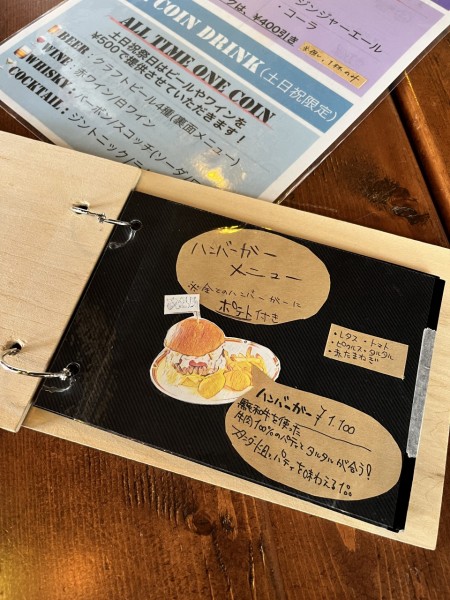 ジンジャーエール
・コーラ
クは、¥400引き
COIN DRINK (土日祝限定)
ALL TIME ONE COIN
土日祝祭日はビールやワインを
¥500で提供させていただきます！
BEER：クラフトビール4種(裏面メニュー)
WINE：赤ワイン/白ワイン
WHISKY：バーボン/スコッチ(ソーダ
COCKTAIL：ジントニック/
ハンバーガー
メニュー
※全てのハンバーガーに
ポテト付き
・レタス・トマト
・ピクルス・タルタル
・玉たまねぎ
ハンバーガー ¥1.100
和牛を使った
牛肉100%のパティとタルタルが合う！
パティを味わえる